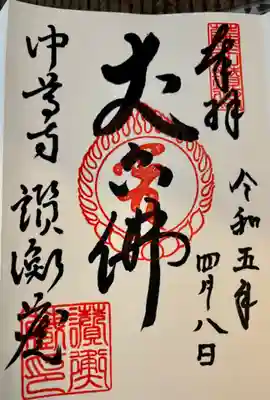 奉拝
令和五年
四月八日
丈六佛
中尊寺 讃衡蔵